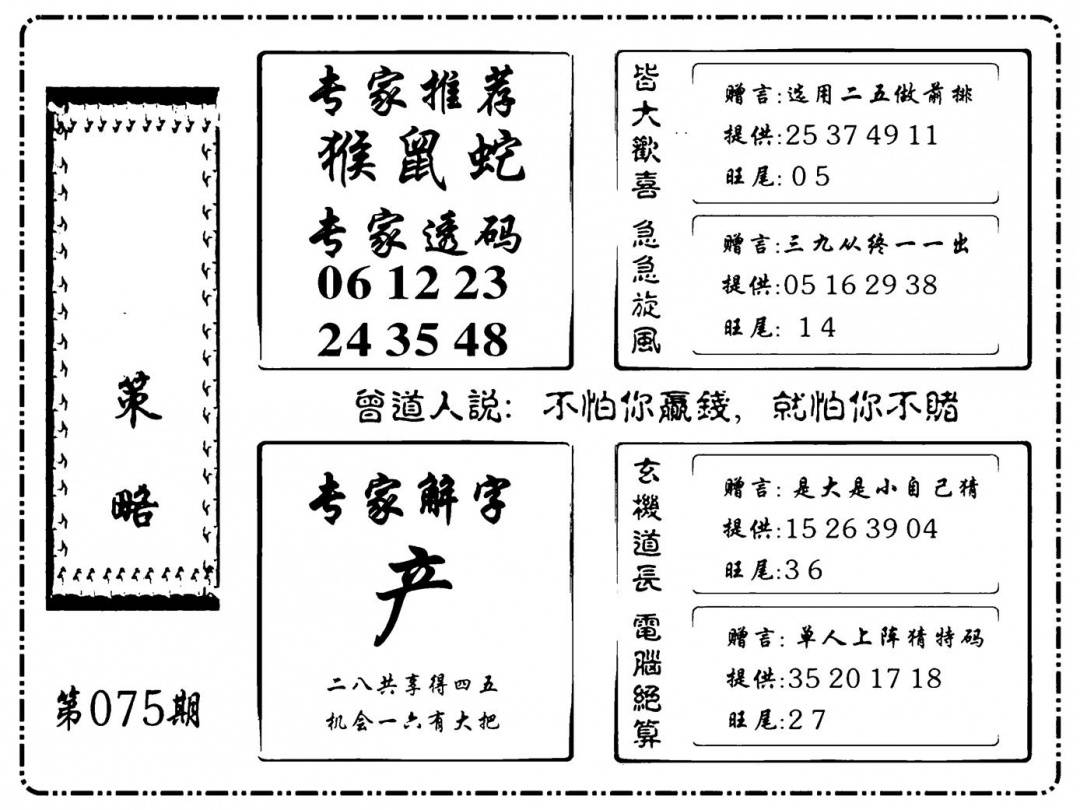 策略
第075期
专家推荐
猴鼠蛇
专家透码
06 12 23
24 35 48
皆大歡喜
赠言:选用二五做前排
提供:25 37 49 11
旺尾:05
急急旋風
赠言:三九从终一一出
提供:05 16 29 38
旺尾: 14
曾道人説: 不怕你贏錢, 就怕你不賭
专家解字
产
二八共享得四五
机会一六有大把
玄機道長
赠言: 是大是小自己猜
提供:15 26 39 04
旺尾:36
電腦絕算
赠言: 单人上阵猜特码
提供:35 20 17 18
旺尾:27